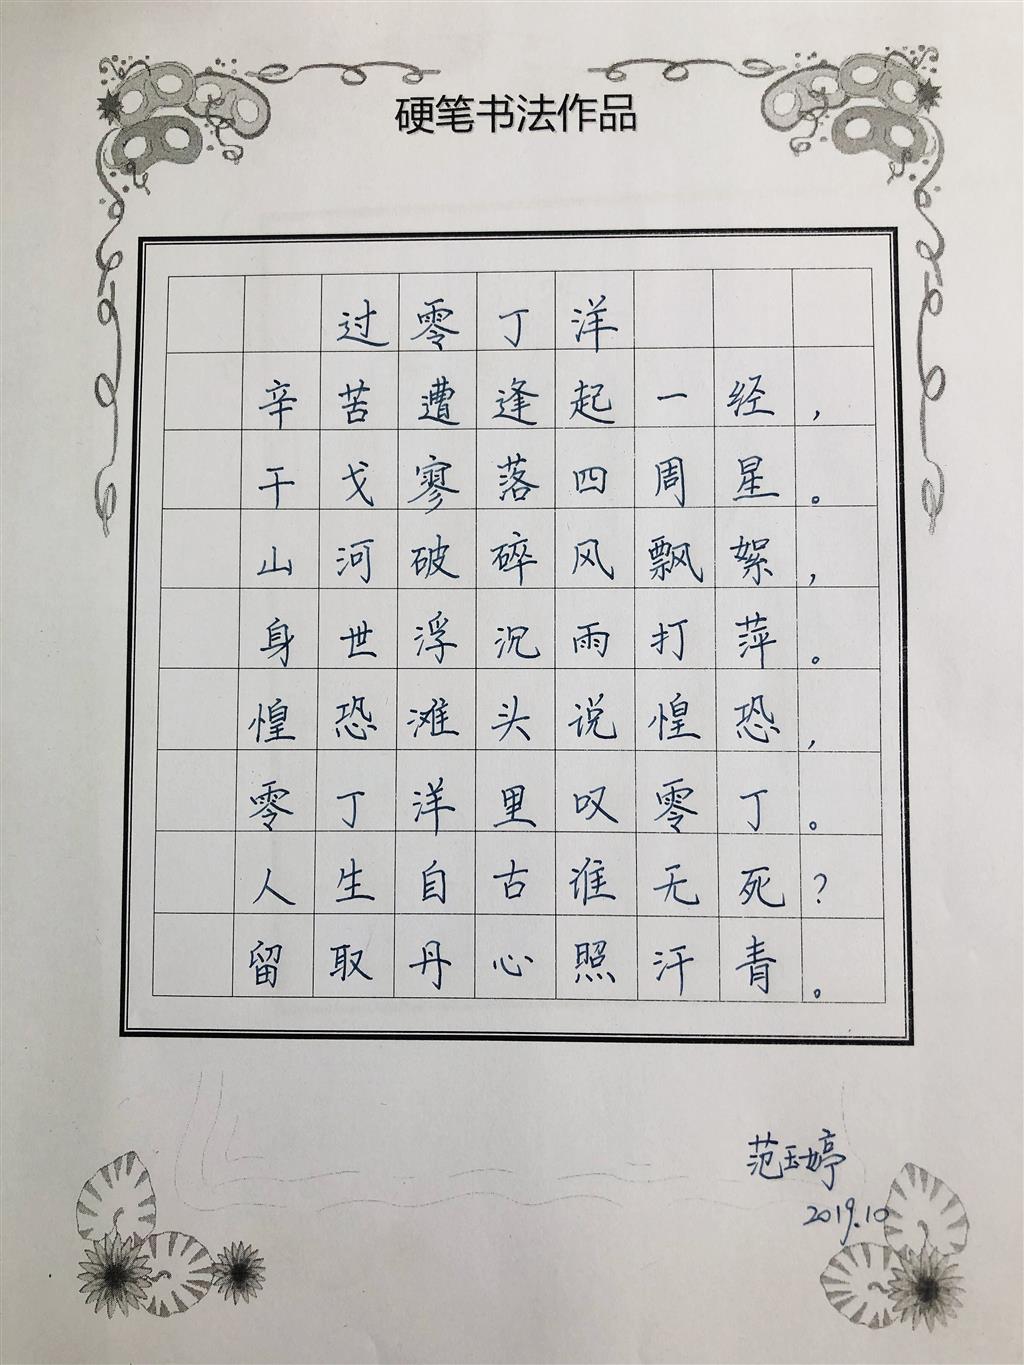 硬笔书法作品
过零丁洋
辛苦遭逢起一经，
干戈寥落四周星。
山河破碎风飘絮，
身世浮沉雨打萍。
惶恐滩头说惶恐，
零丁洋里叹零丁。
人生自古谁无死？
留取丹心照汗青。
范玉婷
2019.10